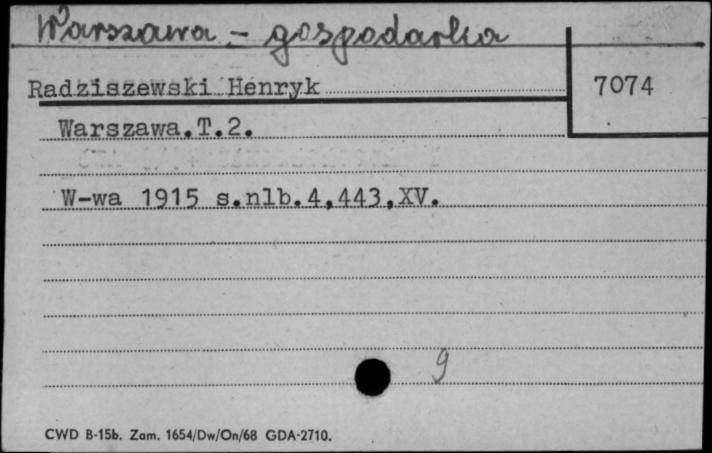 Warszawa – gospodarka
Radziszewski Henryk
7074
Warszawa.T.2.
W-wa 1915 s.nlb.4,443,XV.
9
CWD B-15b. Zam. 1654/Dw/On/68 GDA-2710.